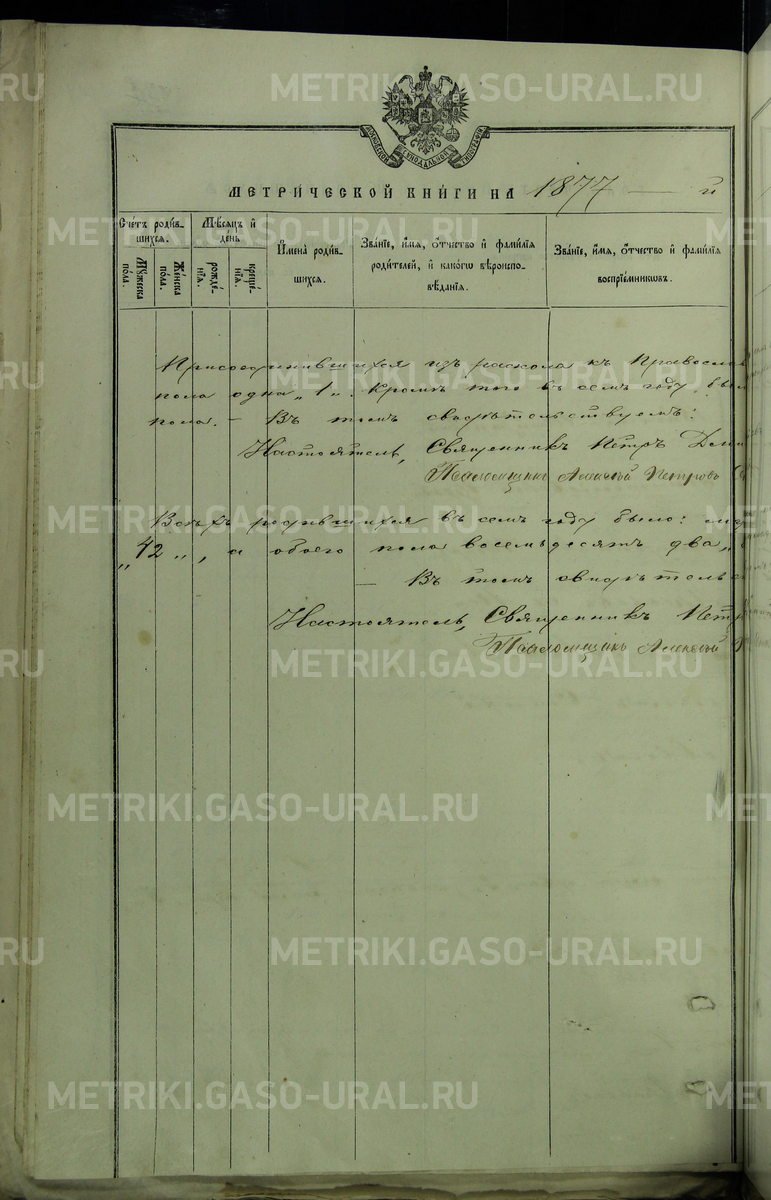 МОСКОВСКОЙ СѴНОДАЛЬНОЙ ТИПОГРАФІИ
МЕТРИ́ЧЕСКОЙ КНИ́ГИ НА 1877 — й
Сче́тъ роди́в-
шихся.
Му́жеска по́ла.
Же́нска по́ла.
Мѣ́сяцъ и де́нь
рожде́-нія.
креще́-нія.
И҆мена̀ роди́в-
шихся.
Зва́ніе, и҆́мя, ѻ҆́тчество и҆ фами́лія
роди́телей, и҆ како́гѡ вѣроиспо-
вѣ́данія.
Зва́ніе, и҆́мя, ѻ҆́тчество и҆ фами́лія
воспріе́мникѡвъ.
Присоединившихся изъ раскола къ Православ
пола одна „1„. Кромѣ того въ семъ году был
пола. — Въ томъ свидѣтельствуемъ:
Настоятель, Священникъ Петръ
Псаломщикъ Алексѣй Петровъ
Всѣхъ родившихся въ семъ году было:
„42„, а обоего пола восемьдесятъ два„
— Въ томъ свидѣтельс
Настоятель, Священникъ Петр
Псаломщикъ Алексѣй
METRIKI.GASO-URAL.RU